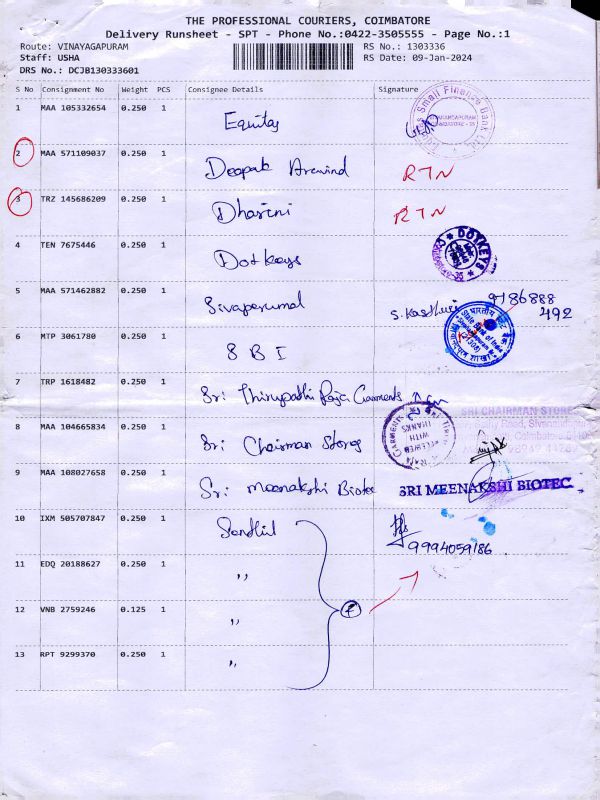 THE PROFESSIONAL COURIERS, COIMBATORE
Delivery Runsheet - SPT - Phone No.:0422-3505555 - Page No.:1
Route: VINAYAGAPURAM
RS No.: 1303336
Staff: USHA
RS Date: 09-Jan-2024
DRS No.: DCJB130333601
S No Consignment No Weight PCS Consignee Details Signature
1 MAA 105332654 0.250 1 Equitas
Small Finance Bank Ltd
2 MAA 571109037 0.250 1 Deepak Aravind RTN
3 TRZ 145686209 0.250 1 Dharini RTN
4 TEN 7675446 0.250 1 Dot Keys
DOTKEYS
5 MAA 571462882 0.250 1 Sivaperumal S. Kasthuri 9186888
492
6 MTP 3061780 0.250 1 SBI
State Bank of India
7 TRP 1618482 0.250 1 Sri Thirupathi Raja Garments
RECEIVED
WITH
THANKS
8 MAA 104665834 0.250 1 Sri Chairman Stores
SRI CHAIRMAN STORE
9 MAA 108027658 0.250 1 Sri Meenakshi Biotec
SRI MEENAKSHI BIOTEC
10 IXM 505707847 0.250 1 Senthil
9994059186
11 EDQ 20188627 0.250 1 "
12 VNB 2759246 0.125 1 "
13 RPT 9299370 0.250 1 "